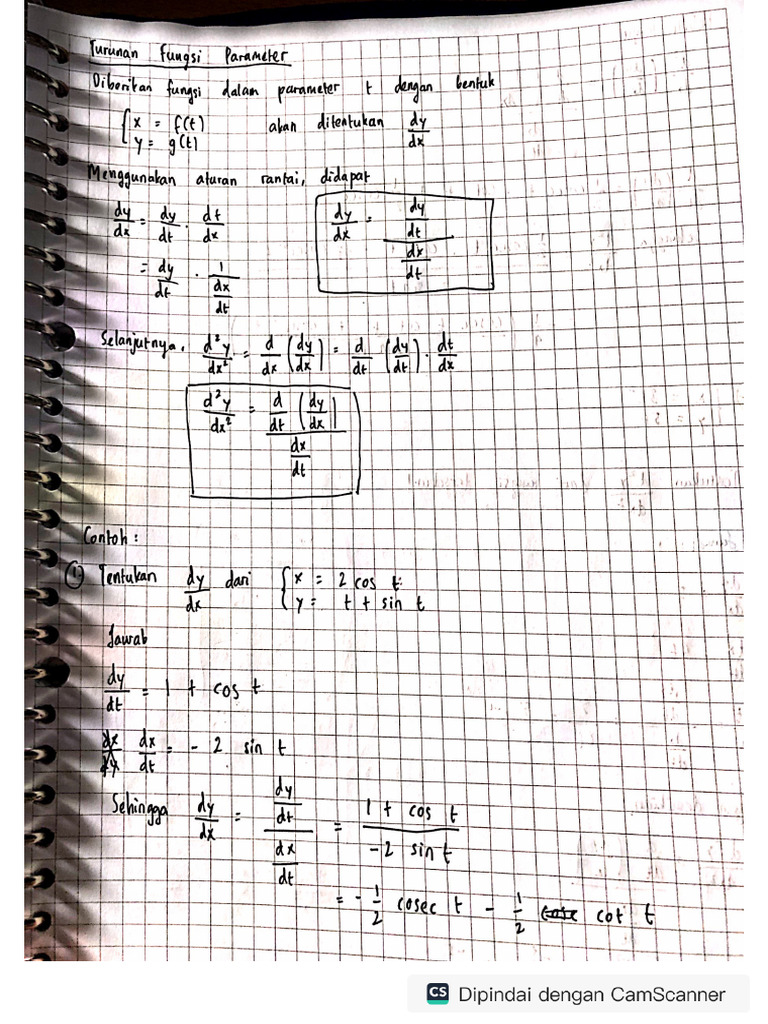 Turunan Fungsi Parameter
Diberikan fungsi dalam parameter t dengan bentuk
{x = f(t) akan ditentukan dy/dx
{y = g(t)
Menggunakan aturan rantai, didapat
dy/dx = dy/dt · dt/dx
dy/dx = (dy/dt)/(dx/dt)
= dy/dt · 1/(dx/dt)
Selanjutnya, d²y/dx² = d/dx (dy/dx) = d/dt (dy/dt) · dt/dx
d²y/dx² = (d/dt (dy/dx))/(dx/dt)
Contoh :
① Tentukan dy/dx dari {x = 2 cos t
{y = t + sin t
Jawab
dy/dt = 1 + cos t
dx/dt = - 2 sin t
Sehingga dy/dx = (dy/dt)/(dx/dt) = (1 + cos t)/(-2 sin t)
= - 1/2 cosec t - 1/2 cot t
CS Dipindai dengan CamScanner